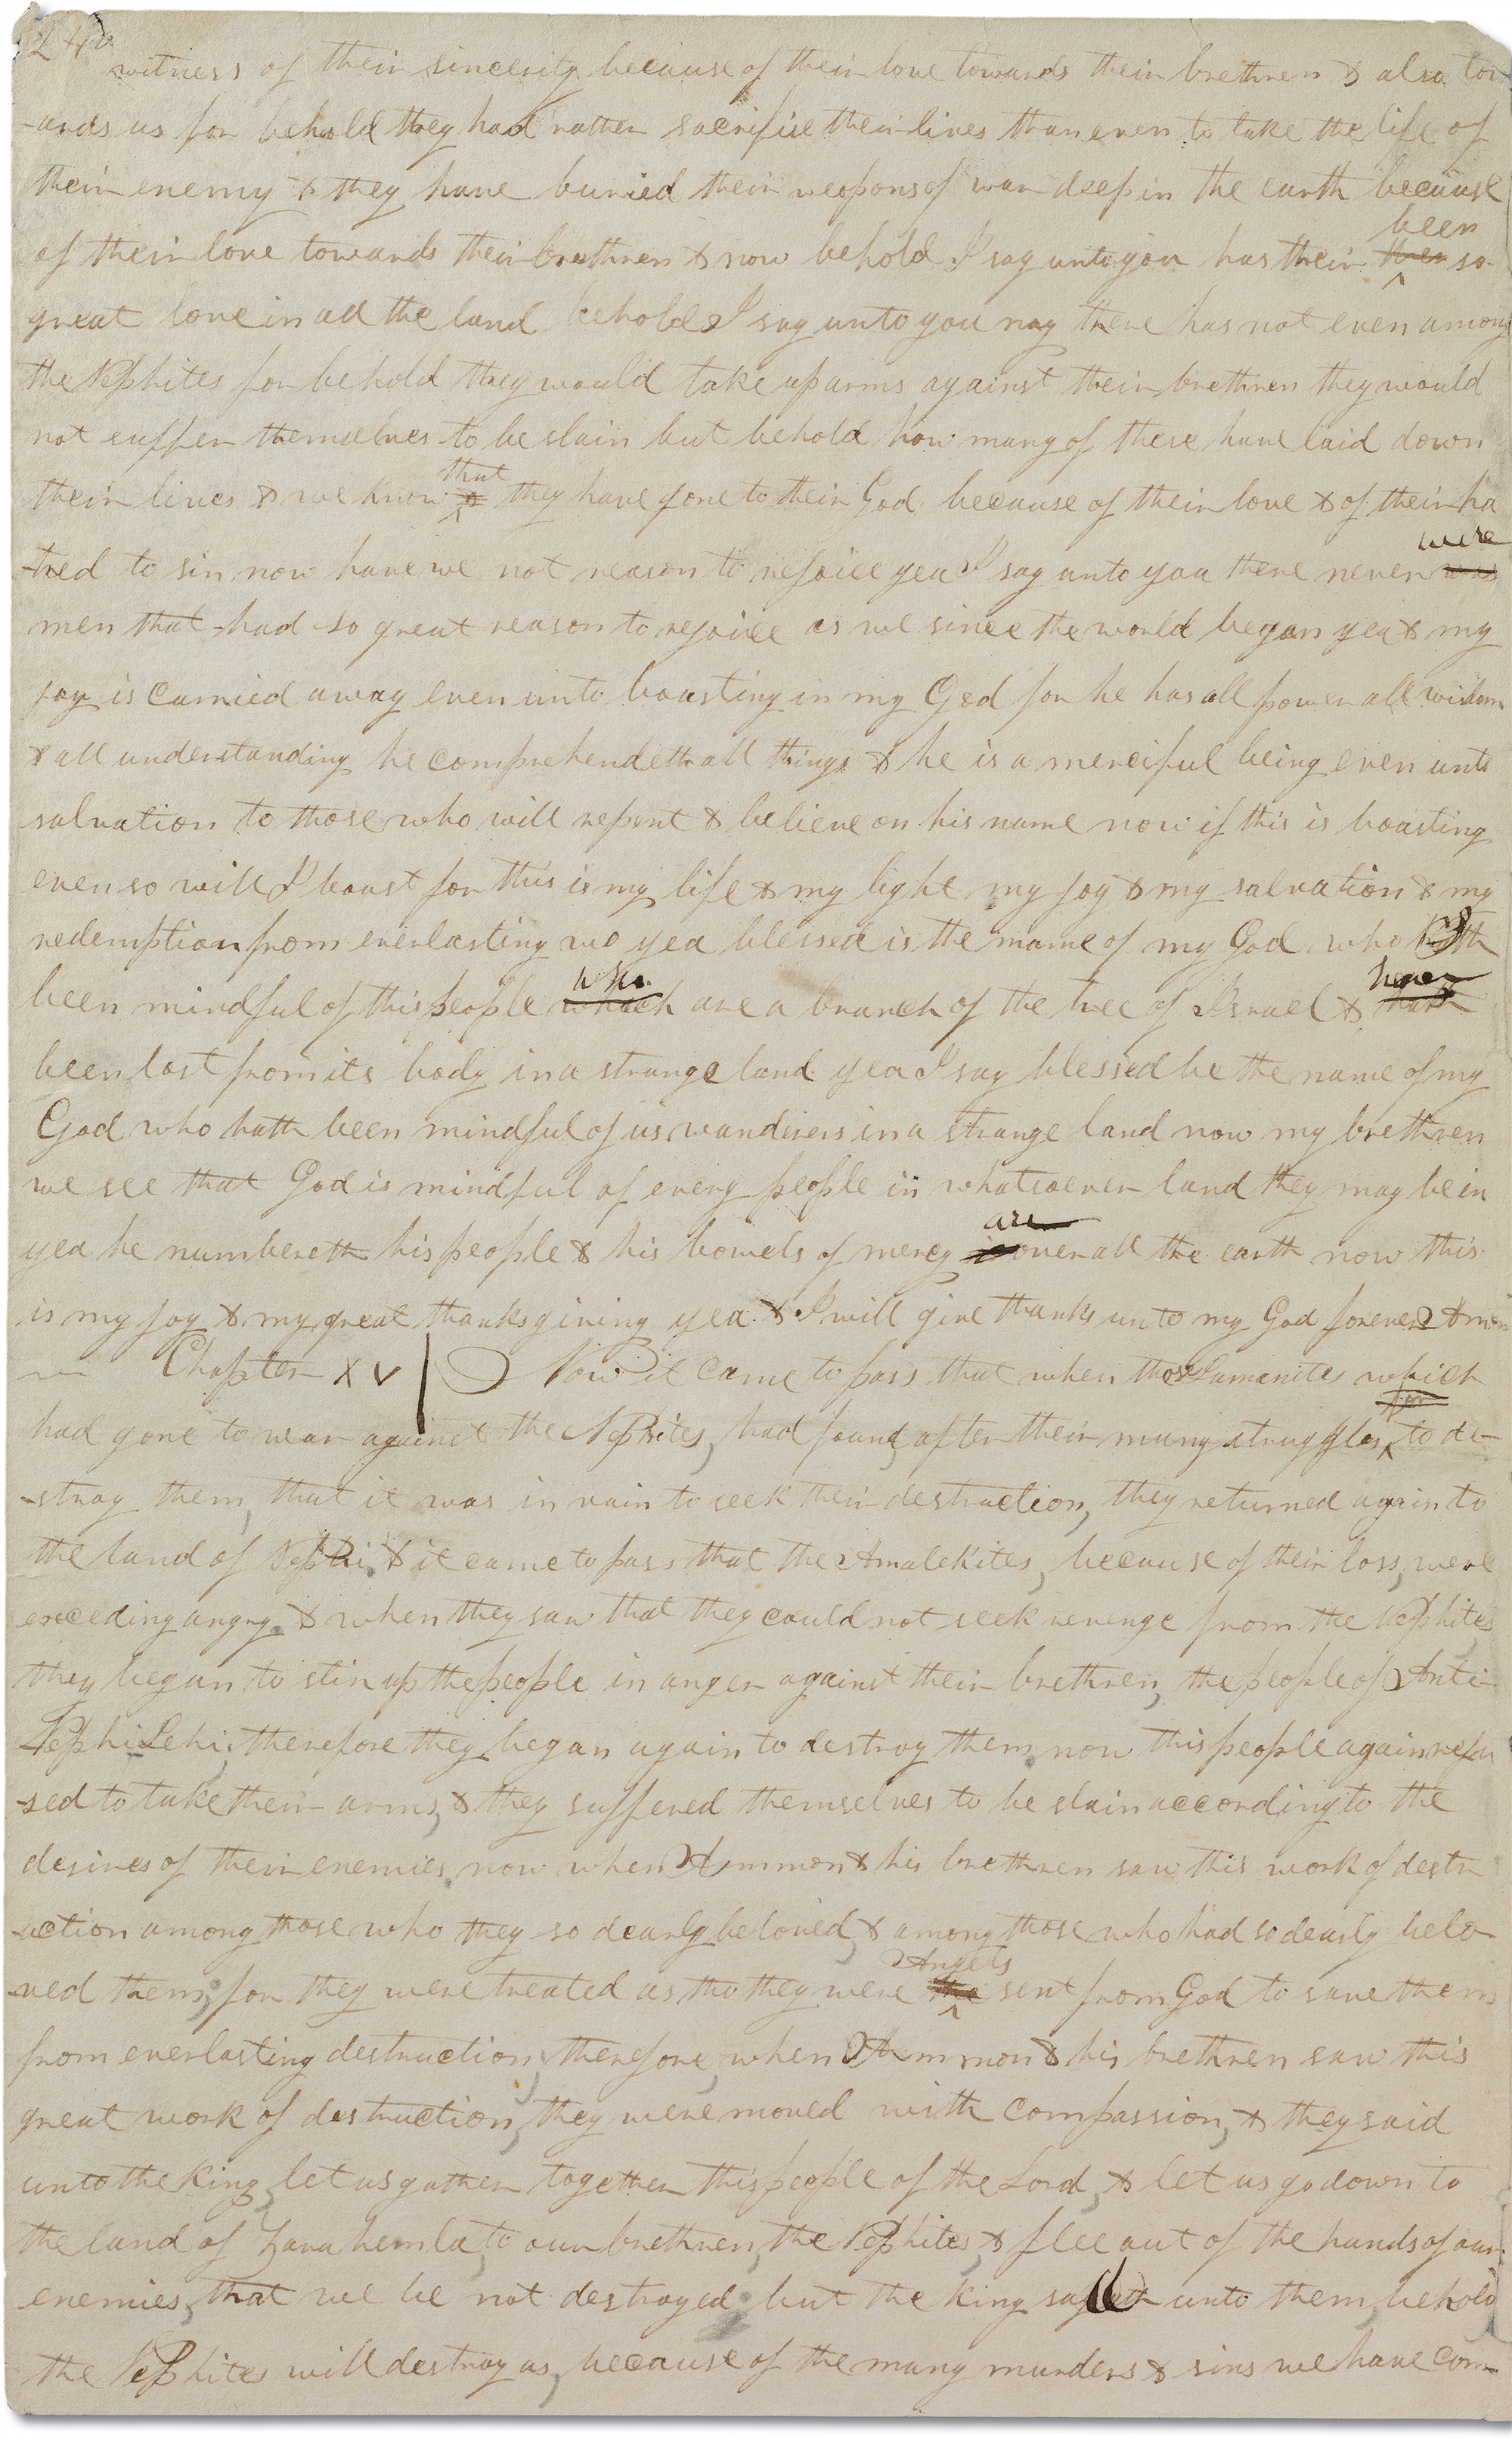 240
witness of their sincerity because of their love towards their brethren & also tow
-ards us for behold they had rather sacrifise their lives than even to take the life of
their enemy & they have buried their weopons of war deep in the earth because
of their love towards their brethren & now behold I say unto you has their been so
great love in all the land behold I say unto you nay there has not even among
the Nephites for behold they would take up arms against their brethren they would
not suffer themselves to be slain but behold how many of these have laid down
their lives & we know that they have gone to their God because of their love & of their ha
-tred to sin now have we not reason to rejoice yea I say unto you there never were was
men that had so great reason to rejoice as we since the world began yea & my
joy is carried away even unto boasting in my God for he has all power all wisdom
& all understanding he comprehendeth all things & he is a merciful being even unto
salvation to those who will repent & believe on his name now if this is boasting
even so will I boast for this is my life & my light my joy & my salvation & my
redemption from everlasting wo yea blessed is the name of my God who
been mindful of this people who which are a branch of the tree of Israel & hath
been lost from its body in a strange land yea I say blessed be the name of my
God who hath been mindful of us wanderers in a strange land now my brethren
we see that God is mindful of every people in whatsoever land they may be in
yea he numbereth his people & his bowels of mercy are is over all the earth now this
is my joy & my great thanksgiving yea & I will give thanks unto my God forever Amen
Chapter XV Now it came to pass that when those Lamanites which
had gone to war against the Nephites, had found, after their many struggles to de-
-stroy them, that it was in vain to seek their destruction, they returned again to
the land of Nephi. & it came to pass that the Amalekites, because of their loss, were
exceding angry. & when they saw that they could not seek revenge from the Nephites
they began to stir up the people in anger against their brethren, the people of Anti
Nephi Lehi; therefore they began again to destroy them. now this people again refu
-sed to take their arms, & they suffered themselves to be slain according to the
desires of their enemies. now when Ammon & his brethren saw this work of destr
-uction among those who they so dearly beloved, & among those who had so dearly belo
-ved them; for they were treated as tho they were Angels the sent from God to save them
from everlasting destruction, therefore, when Ammon & his brethren saw this
great work of destruction, they were moved with compassion, & they said
unto the king, let us gather together this people of the Lord, & let us go down to
the land of Zarahemla, to our brethren, the Nephites, & flee out of the hands of our
enemies, that we be not destroyed. but the king unto them, behold
the Nephites will destroy us, because of the many murders & sins we have com-